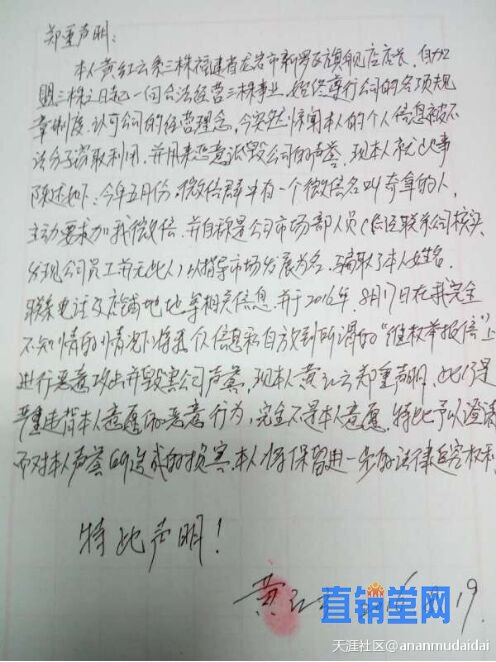 郑重声明:
本人黄红云系三株福建省龙岩市新罗区旗舰店店长,自加
盟三株之日起,一向合法经营三株事业,始终遵行公司的各项规
章制度,认可公司的经营理念,今突然惊闻本人的个人信息被不
法分子盗取利用,并用来恶意诋毁公司的声誉,现本人就此事
陈述如下:今年五月份,微信群中有一个微信名叫奇葩的人,
主动要求加我微信,并自称是公司市场部人员(后经联系公司核实,
发现公司员工并无此人)以指导市场发展为名,骗取了本人姓名,
联系电话及店铺地址等相关信息,并于2016年,8月17日在我完全
不知情的情况下将我个人信息私自放到所谓的“维权举报信”上
进行恶意攻击并毁害公司声誉,现本人黄红云郑重声明,此行是
严重违背本人意愿的恶意行为,完全不是本人意愿,特此予以澄清
而对本人声誉所造成的损害,本人将保留进一步的法律追究权利。
特此声明!
黄红 19
直销堂网
天涯社区@ananmudaidai